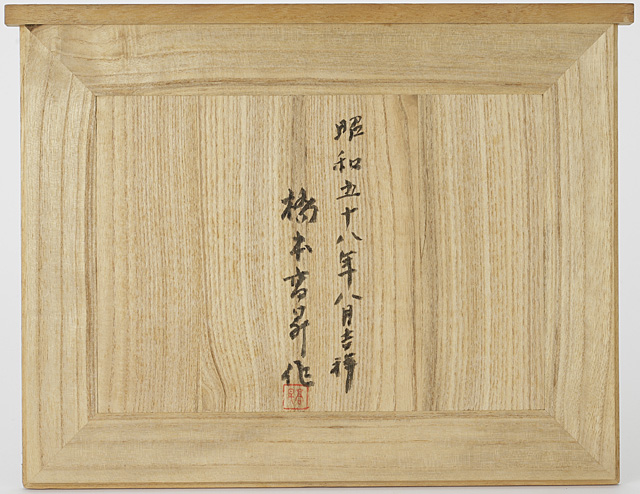 昭和五十八年八月吉祥
橋本高昇作